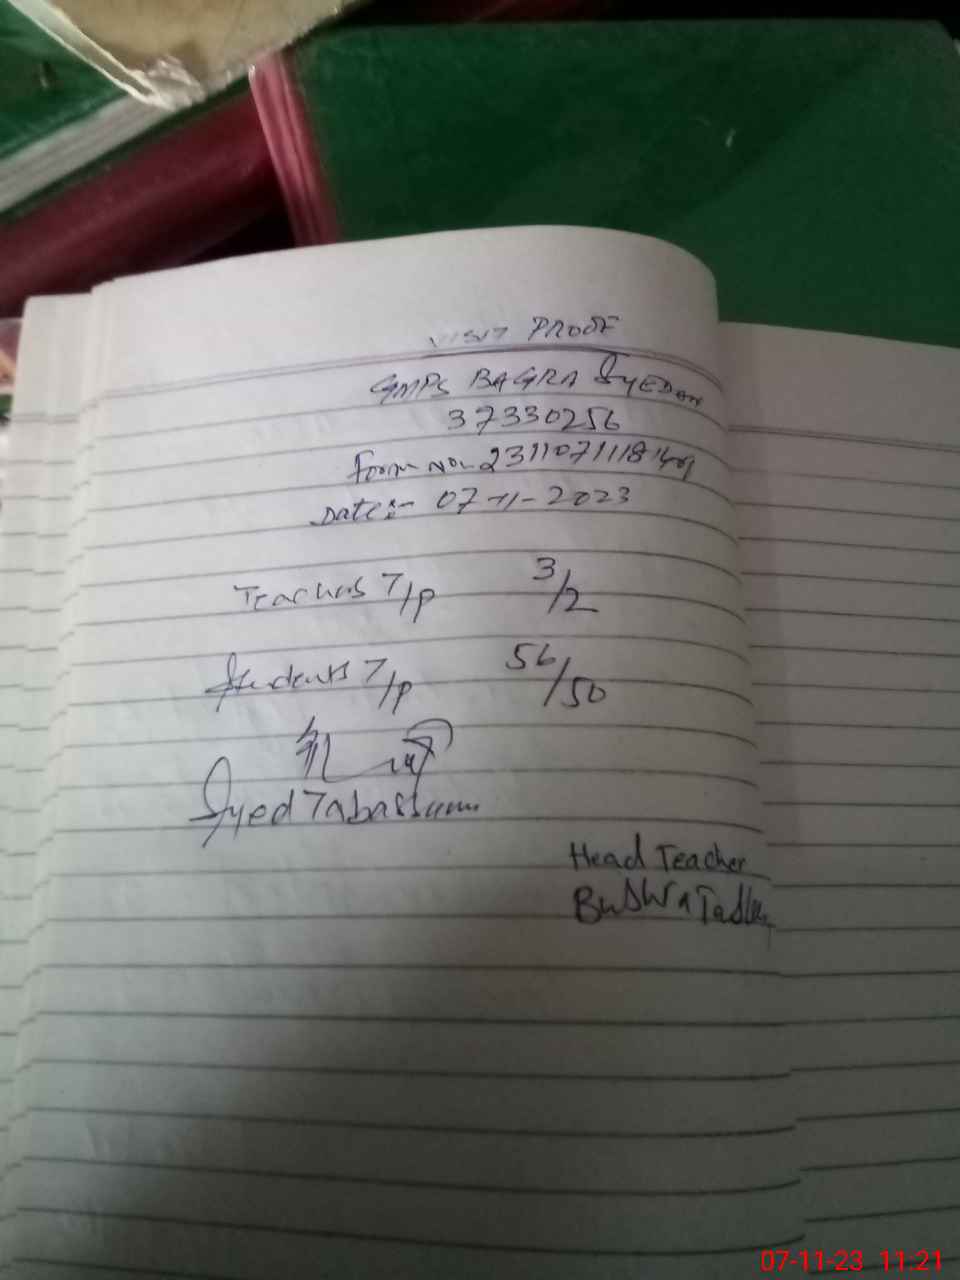 VISIT PROOF
GMPS BAGRA SYEDAN
37330256
Form No- 2311071118
Date:- 07-11-2023
Teachers T/P 3/2
Students T/P 56/50
Syed Tabassum
Head Teacher
Bushra
07-11-23 11:21